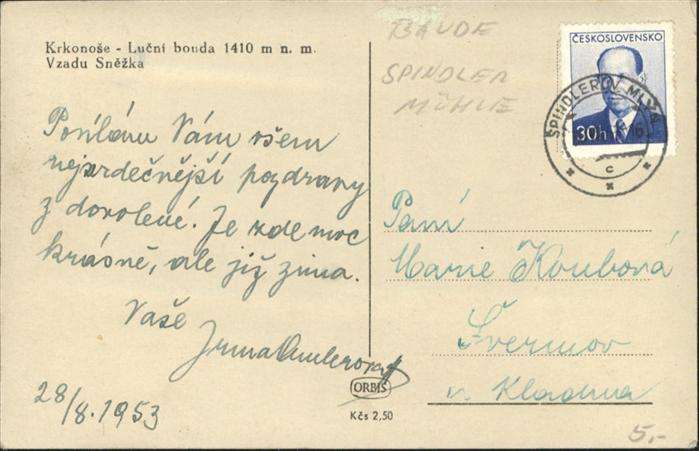 Krkonoše - Luční bouda 1410 m n. m.
Vzadu Sněžka
Posílám Vám všem
nejsrdečnější pozdravy
z dovolené. Je zde moc
krásně, ale již zima.
Vaše
28/8.1953
ORBIS
Kčs 2,50
BAUDE
SPINDLER
MÜHLE
ČESKOSLOVENSKO
30h
ŠPINDLERŮV MLÝN
c
Paní
Marie Koubová
Švermov
u Kladna
5,-